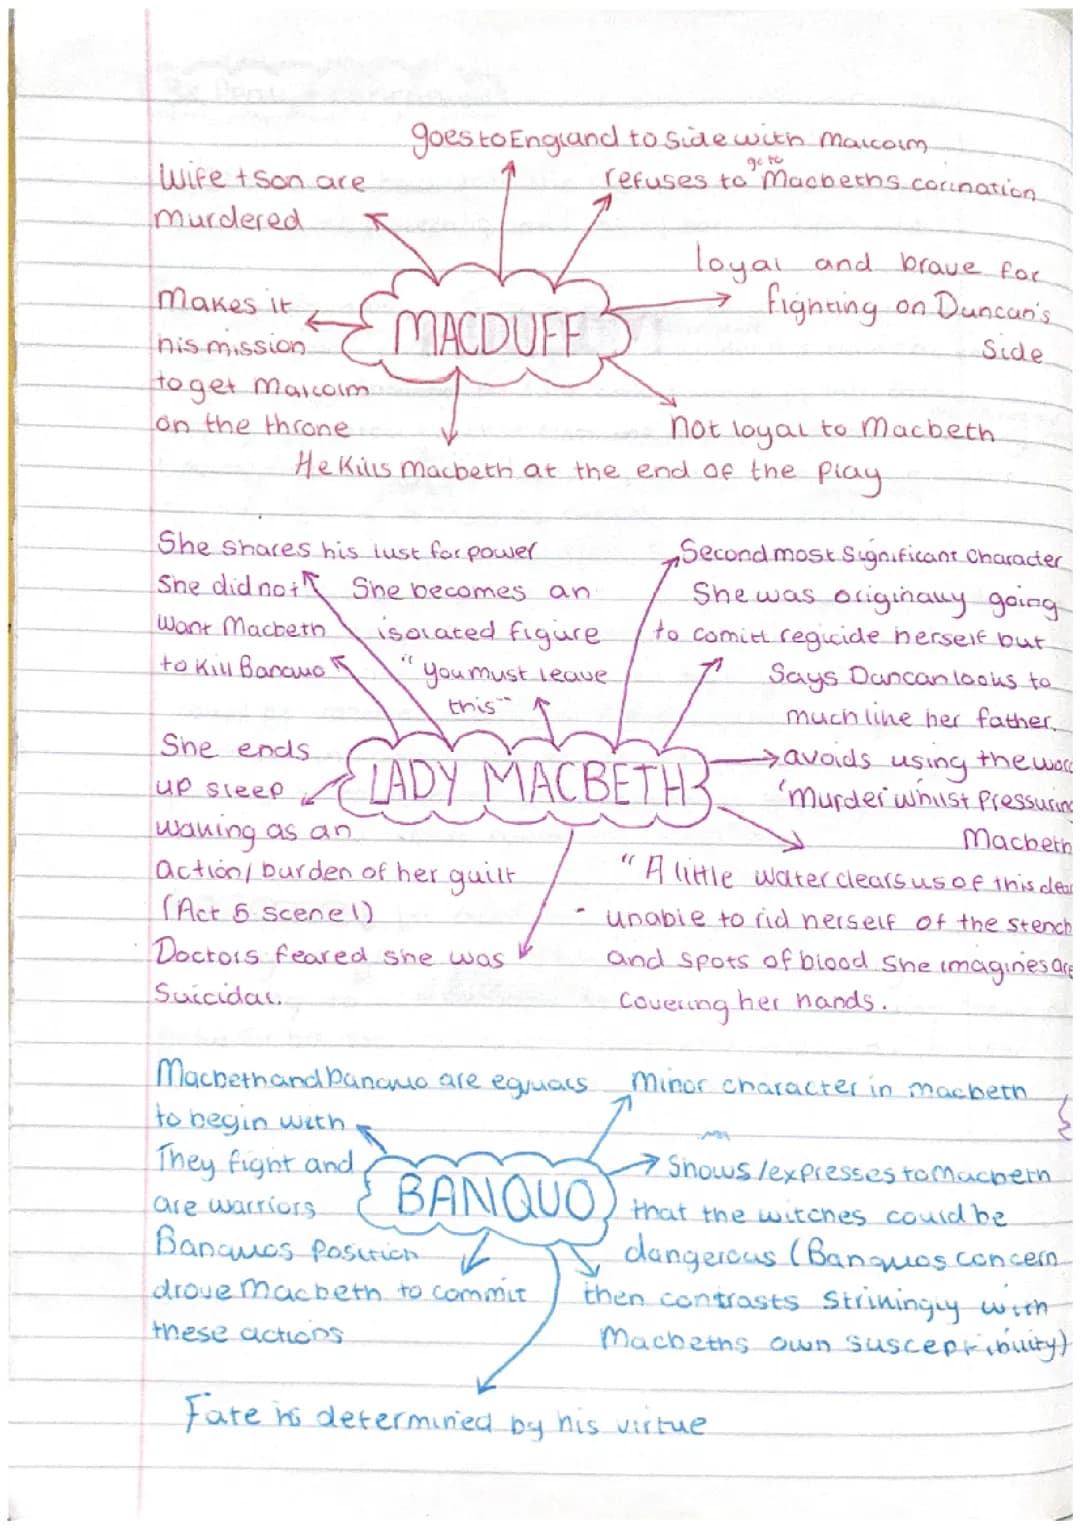 goes to England to side with Malcolm
go to
refuses to Macbeths corination
Wife + son are
murdered
loyal and brave for
fighting on Duncan's
Side
Makes it
his mission
to get Malcolm
on the throne
MACDUFF
Not loyal to Macbeth
He Kills Macbeth at the end of the play
She shares his lust for power
Second most Significant Character
She did not
Want Macbeth
to Kill Banquo
She becomes an
isolated figure
"you must leave
this"
She was originally going
to comitt regicide herself but
Says Duncan looks to
much like her father.
She ends
up sleep
walking as an
Action/burden of her guilt
(Act 5 scene 1)
LADY MACBETH
avoids using the word
'murder whilst pressuring
Macbeth
"A little water clears us of this deed
- unable to rid herself of the stench
and spots of blood she imagines are
covering her hands.
Doctors feared she was
Suicidal.
Macbeth and Banquo are equals
to begin with
They fight and
are warriors
Minor character in macbeth
BANQUO
Shows/expresses to Macbeth
that the witches could be
dangerous (Banquos concern
then contrasts Strikingly with
Macbeths own susceptibility)
Banquos position
drove Macbeth to commit
these actions
Fate is determined by his virtue